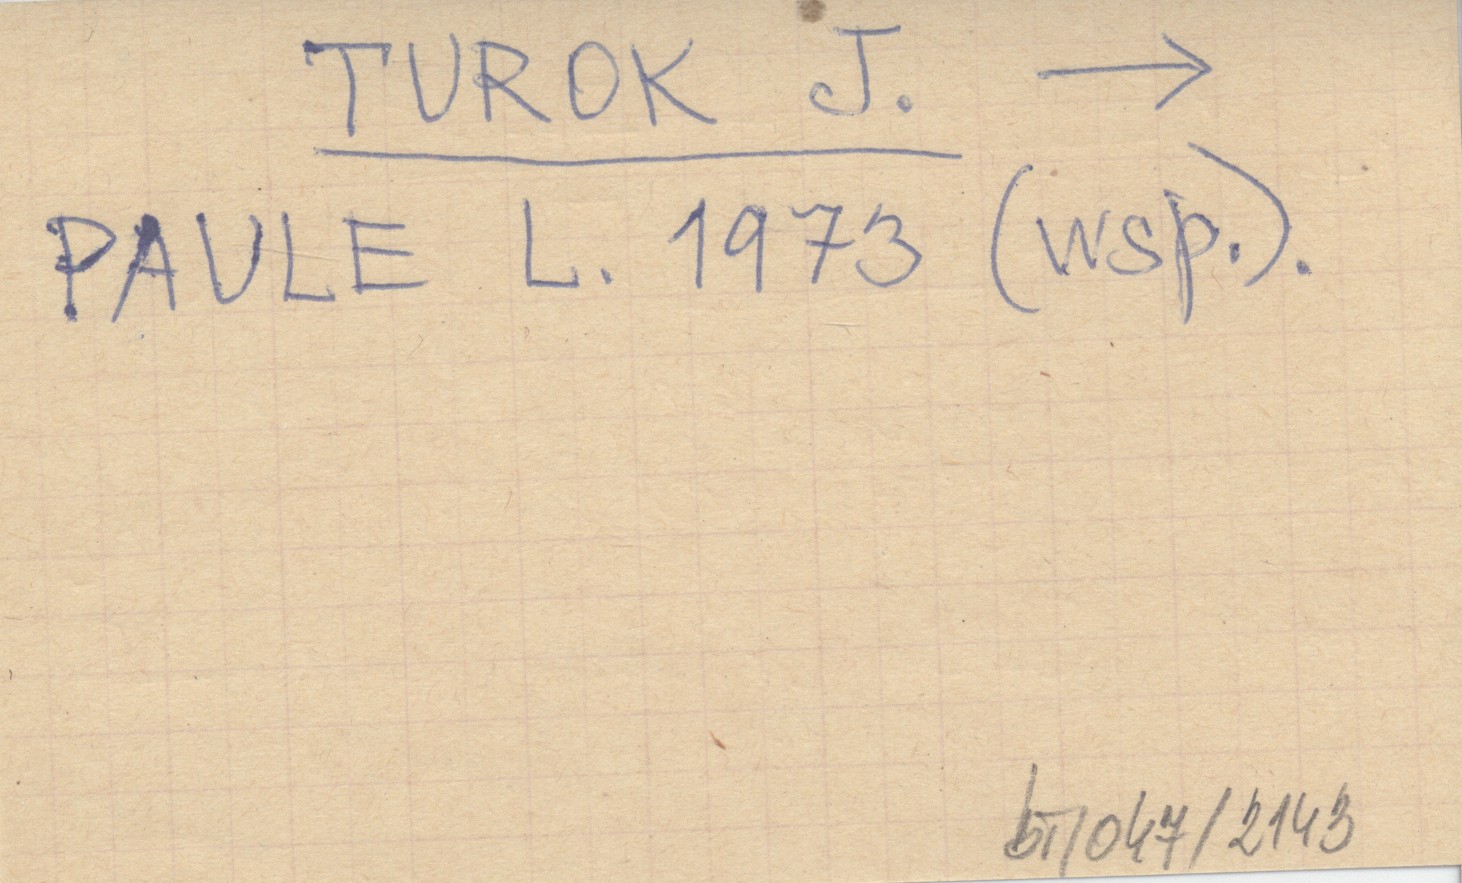 TUROK J. →
PAULE L. 1973 (wsp.).
bT/047/2143